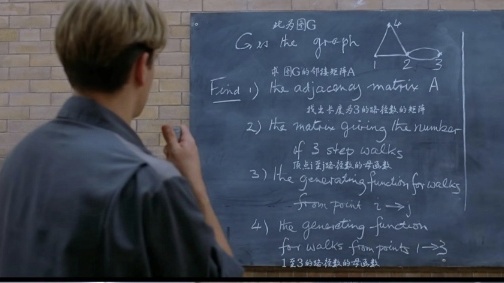 此为图G
G is the graph
4
1 2 3
求图G的邻接矩阵A
Find 1) the adjacency matrix A
找出长度为3的路径数的矩阵
2) the matrix giving the number
of 3 step walks
顶点i至j路径数的母函数
3) the generating function for walks
from point i → j
4) the generating function
for walks from points 1 → 3
1至3的路径数的母函数